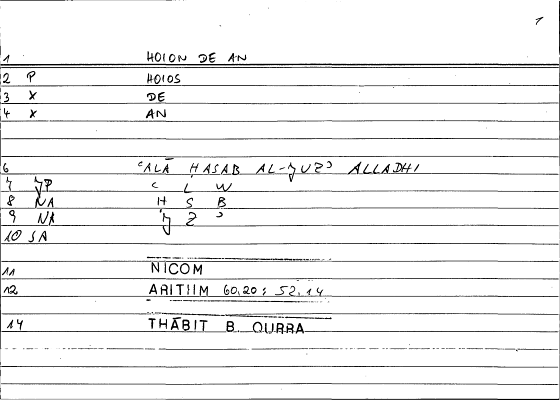 1
1 HOION DE AN
2 P HOIOS
3 X DE
4 X AN
6 ʿALĀ ḤASAB AL-JUZʾ ALLADHI
7 JP ʿ L W
8 NA Ḥ S B
9 NA J Z ʾ
10 SA
11 NICOM
12 ARITIIM 60,20 : 52.14
14 THĀBIT B. QURRA